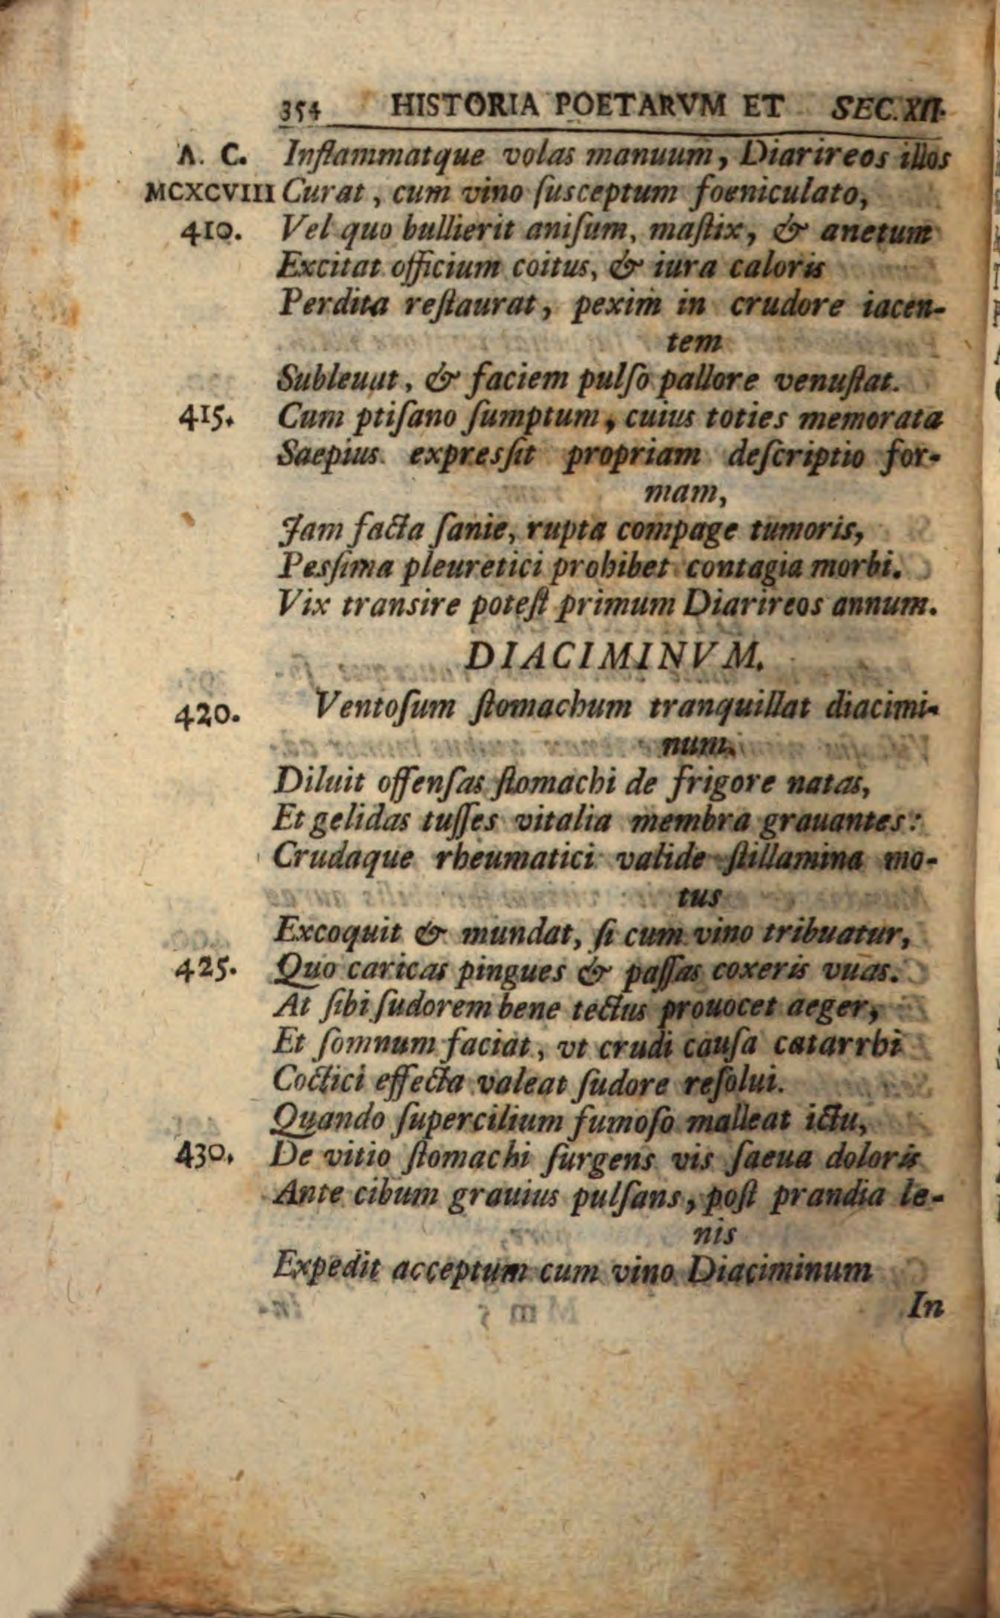 354 HISTORIA POETARVM ET SEC. XII.
A. C. Inflammatque volas manuum, Diarireos illos
MCXCVIII Curat, cum vino ſusceptum foeniculato,
410. Vel quo bullierit aniſum, maſtix, & anetum
Excitat officium coitus, & iura caloris
Perdita reſtaurat, pexim in crudore iacen-
tem
Subleuat, & faciem pulſo pallore venuſtat.
415. Cum ptiſano ſumptum, cuius toties memorata
Saepius expresſit propriam deſcriptio for-
mam,
Jam facta ſanie, rupta compage tumoris,
Pesſima pleuretici prohibet contagia morbi.
Vix transire poteſt primum Diarireos annum.
DIACIMINVM.
420. Ventoſum ſtomachum tranquillat diacimi-
num.
Diluit offenſas ſtomachi de frigore natas,
Et gelidas tuſſes vitalia membra grauantes:
Crudaque rheumatici valide ſtillamina mo-
tus
Excoquit & mundat, ſi cum vino tribuatur,
425. Quo caricas pingues & paſſas coxeris vuas.
At ſibi ſudorem bene tectus prouocet aeger,
Et ſomnum faciat, vt crudi cauſa catarrhi
Coctici effecta valeat ſudore reſolui.
Quando ſupercilium fumoſo malleat ictu,
430. De vitio ſtomachi ſurgens vis ſaeua doloris
Ante cibum grauius pulſans, poſt prandia le-
nis
Expedit acceptum cum vino Diaciminum
In